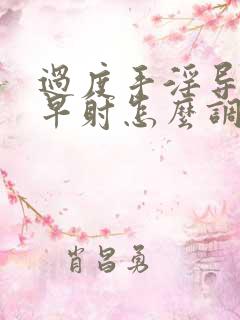 過度手淫导
早射怎麼調
肖昌勇